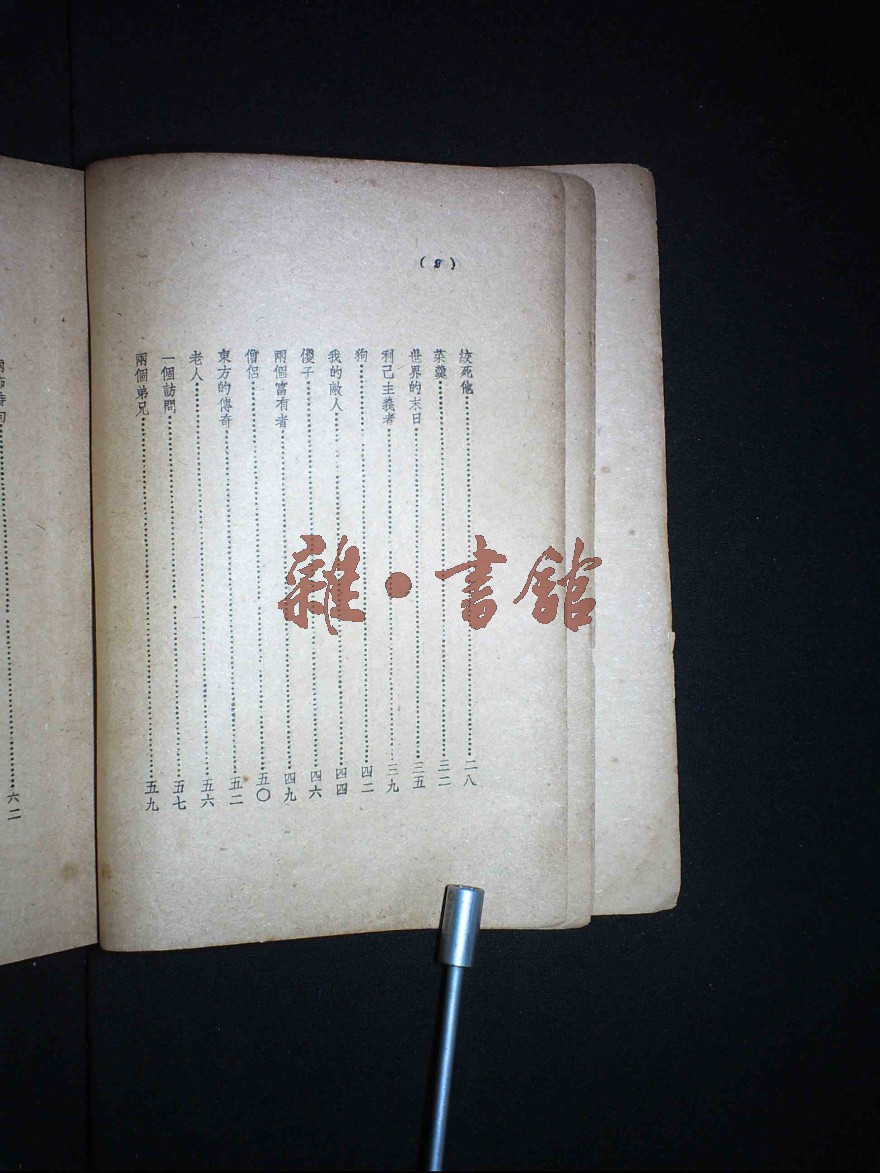 絞死他……二八
菜羹……三二
世界的末日……三五
利己主義者……三九
狗……四二
我的敵人……四四
傻子……四六
兩個富有者……四九
僧侶……五〇
東方的傳奇……五二
老人……五六
一個訪問……五七
兩個弟兄……五九
……六二
雜•書館